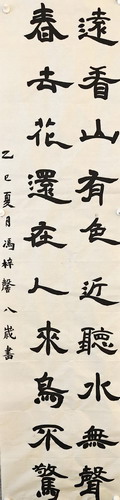 遠看山有色近聽水無聲
春去花還在人來鳥不驚
乙巳夏月馮梓馨八歲書